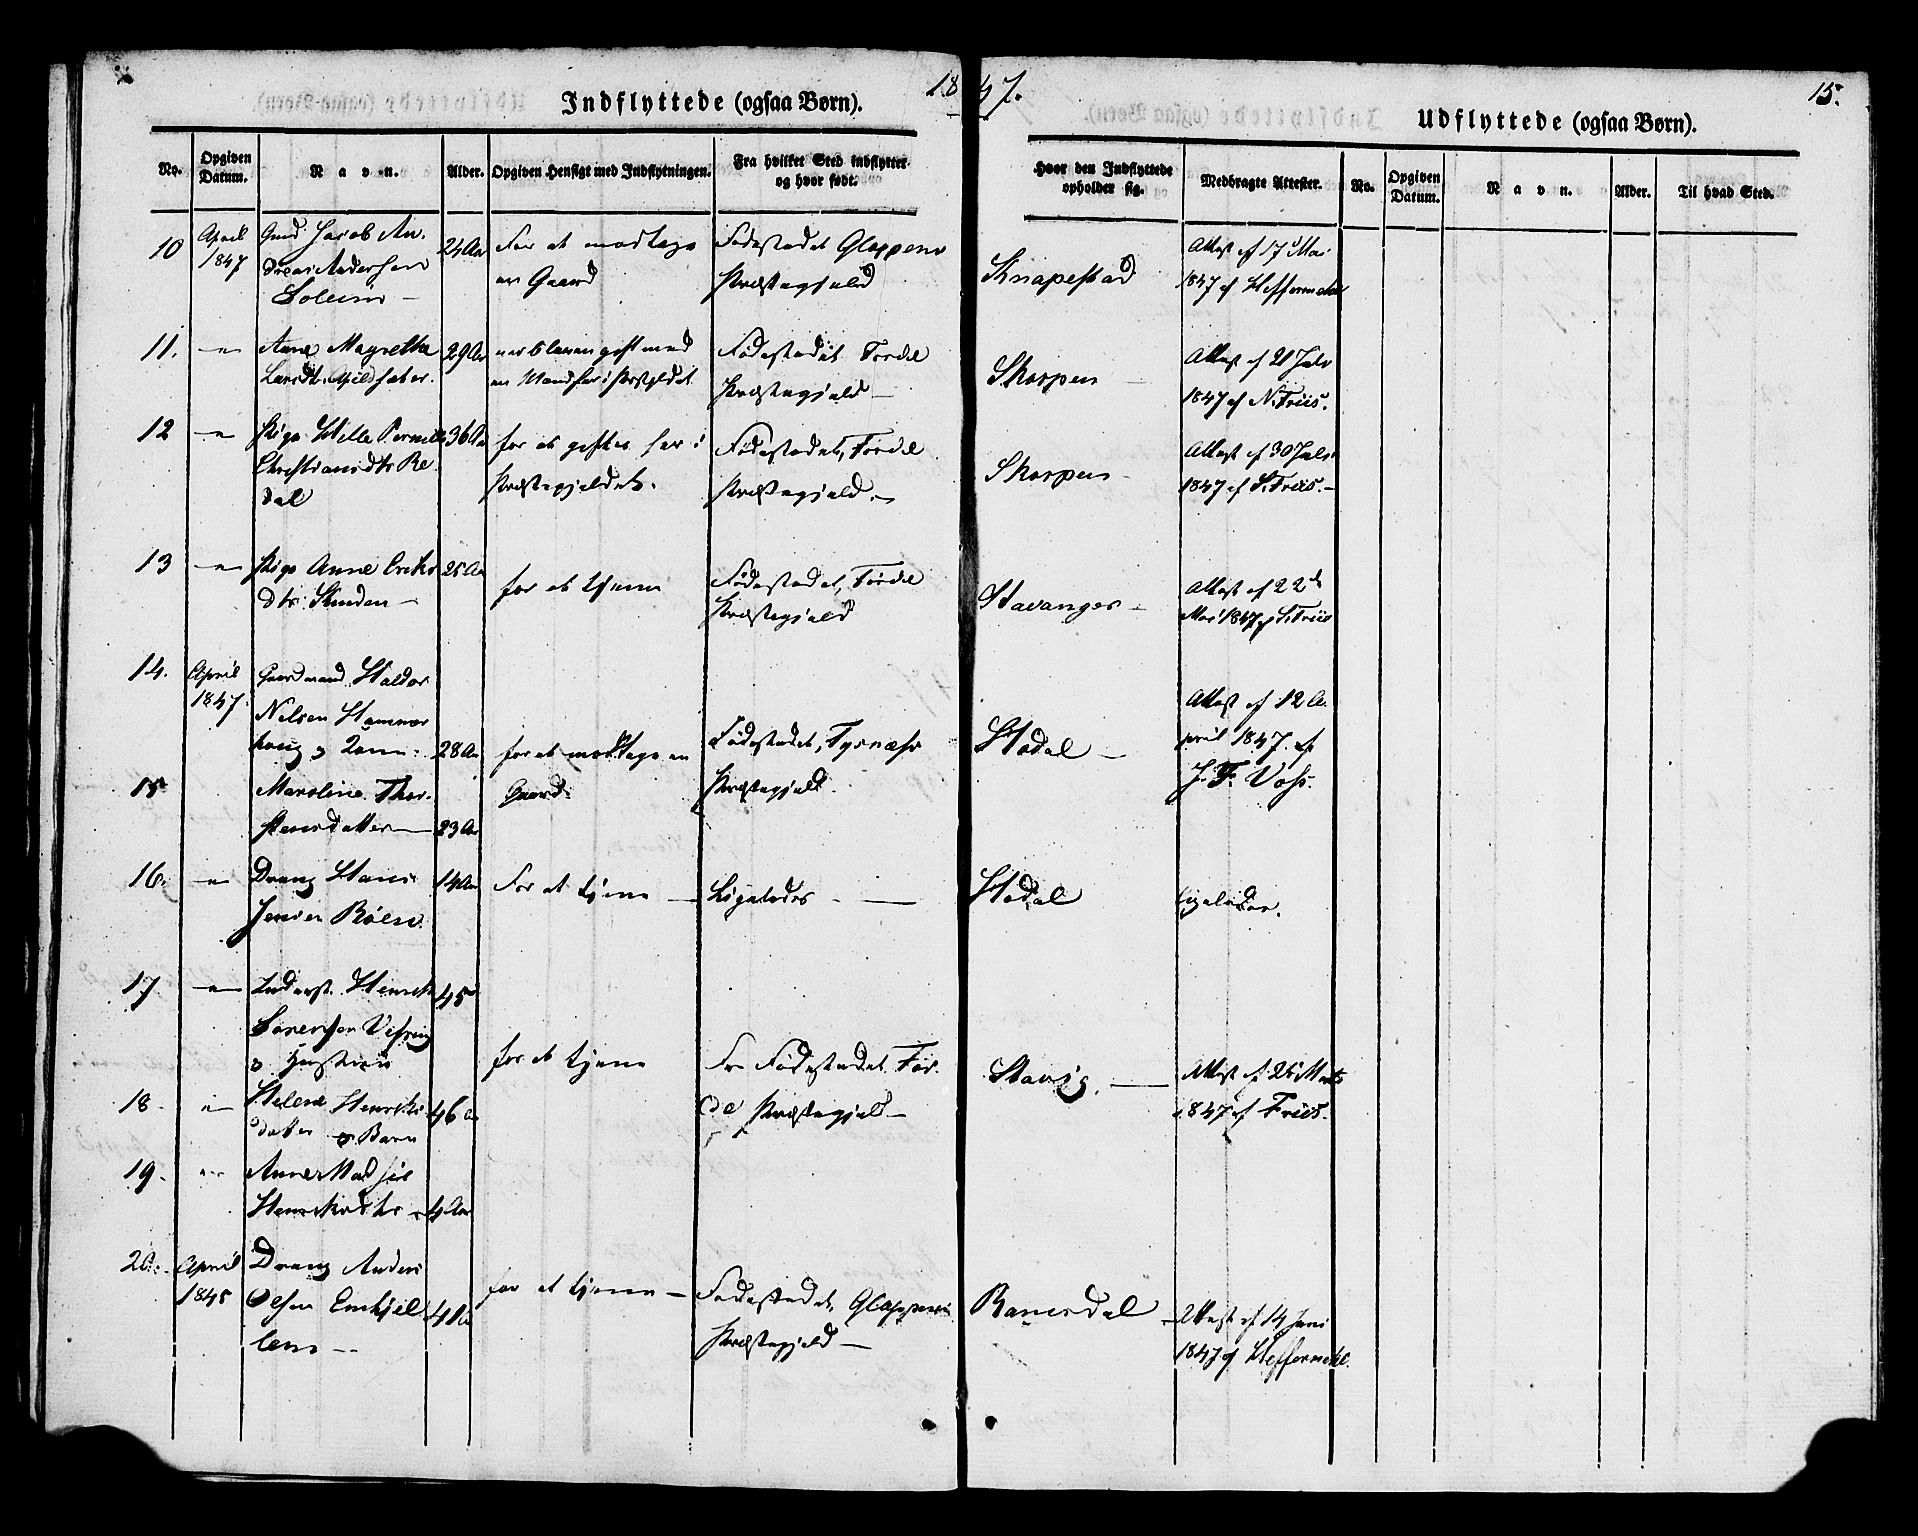 1847.
15.
Indflyttede (ogsaa Børn).
Udflyttede (ogsaa Børn).
No.
Opgiven Datum.
Navn.
Alder.
Opgiven Hensigt med Indflytningen.
Fra hvilket Sted indflyttet og hvor født.
Hvor den Indflyttede opholder sig.
Medbragte Attester.
No.
Opgiven Datum.
Navn.
Alder.
Til hvad Sted.
10
April
1847
Jacob An-
dreas Andersen
Solem
24 Aar
For at modtage
en Gaard
Fødestedet Gloppens
Præstegjeld
Knapestad
Attest af 17 Mai
1847 af Heffermehl
11.
Anne Magrethe
29 Aar
gift med
en Mand her i Præstgjeldet
Fødestedet Førde
Præstegjeld
Skorpen
Attest af 21 July
1847 af N. Friis.
12
Pige Helle Pernille
Christiansdtr Re-
dal
36 Aar
for at giftes her i
Præstegjeldet.
Fødestedet, Førde
Præstegjeld
Skorpen
Attest af 30 July
1847 af Friis.
13
Pige Anne Eriks
dtr
25 Aar
for at tjene
Fødestedet, Førde
Præstegjeld
Stavanger
Attest af 22de
Mai 1847 af Friis
14.
April
1847.
Gaardmand Haldor
Nilsen Hammer
haug & Kone
28 Aar
for at modtage en
Gaard
Fødestedet, Tysnæss
Præstegjeld.
Stodal
Attest af 12 A-
pril 1847 af
J. F. Voss.
15
Maroline Thor-
stensdatter
23 Aar
16.
Dreng Hans
Jensen Røien
14 Aar
For at tjene
Ligeledes
Stodal
Ligeledes.
17
Inderst Henrik
Sørensen Vefring
& Hustrue
45
for at tjene
Fra Fødestedet Før-
de Præstegjeld
Stavig.
Attest af 25 Marts
1847 af Friis.
18
Helene Henriks
datter & Barn
46 Aar
19.
Anne
Henriksdtr
4 Aar
20.
April
1845
Dreng Anders
Olsen
for at tjene
Fødestedet, Gloppens
Præstegjeld
Ramsdal
Attest af 14 Juni
1847 af Heffermehl.